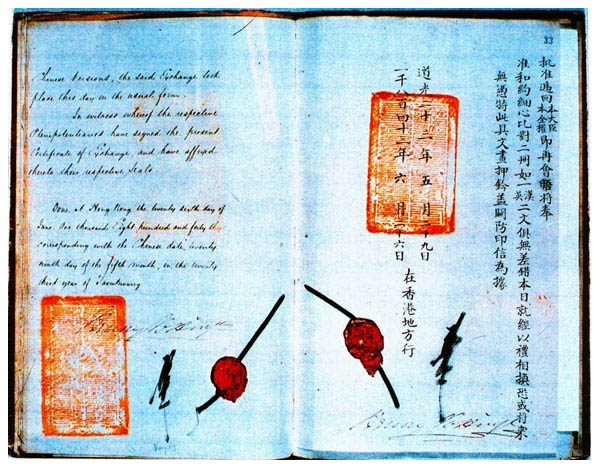 Chinese Versions, the said Exchange took
place this day in the usual form.
In witness whereof the respective
Plenipotentiaries have signed the present
Certificate of Exchange, and have affixed
thereto their respective Seals.
Done, at Hong Kong the twenty sixth day of
June One thousand Eight hundred and forty
corresponding with the Chinese date, twenty
ninth day of the fifth month, in the twenty
third year of Taoukwang
33
批准 回本大臣本全權即再會晤將奉
准和約細心比對二冊如一漢英二文俱無差錯本日就經以禮相換恐或将來
無憑特此具文畫押鈐蓋關防印信為據
道光二十三年五月二十九日
一千八百四十三年六月二十六日
在香港地方行